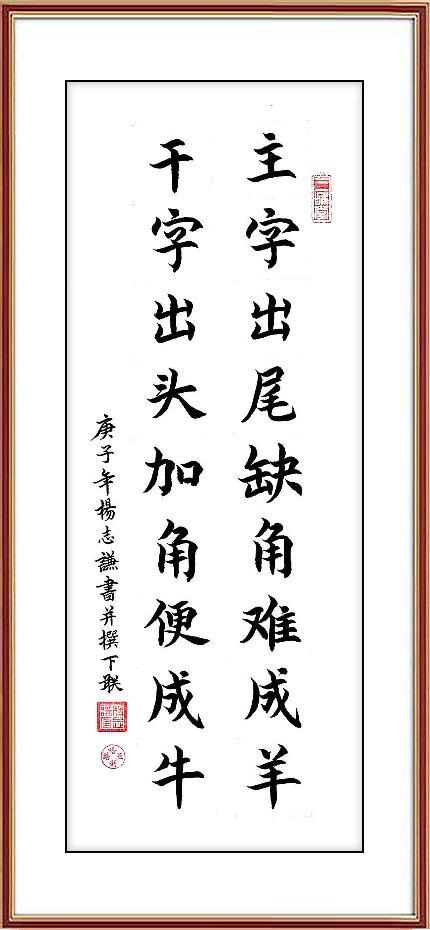 主字出尾缺角难成羊
干字出头加角便成牛
庚子年楊志謙書并撰下联